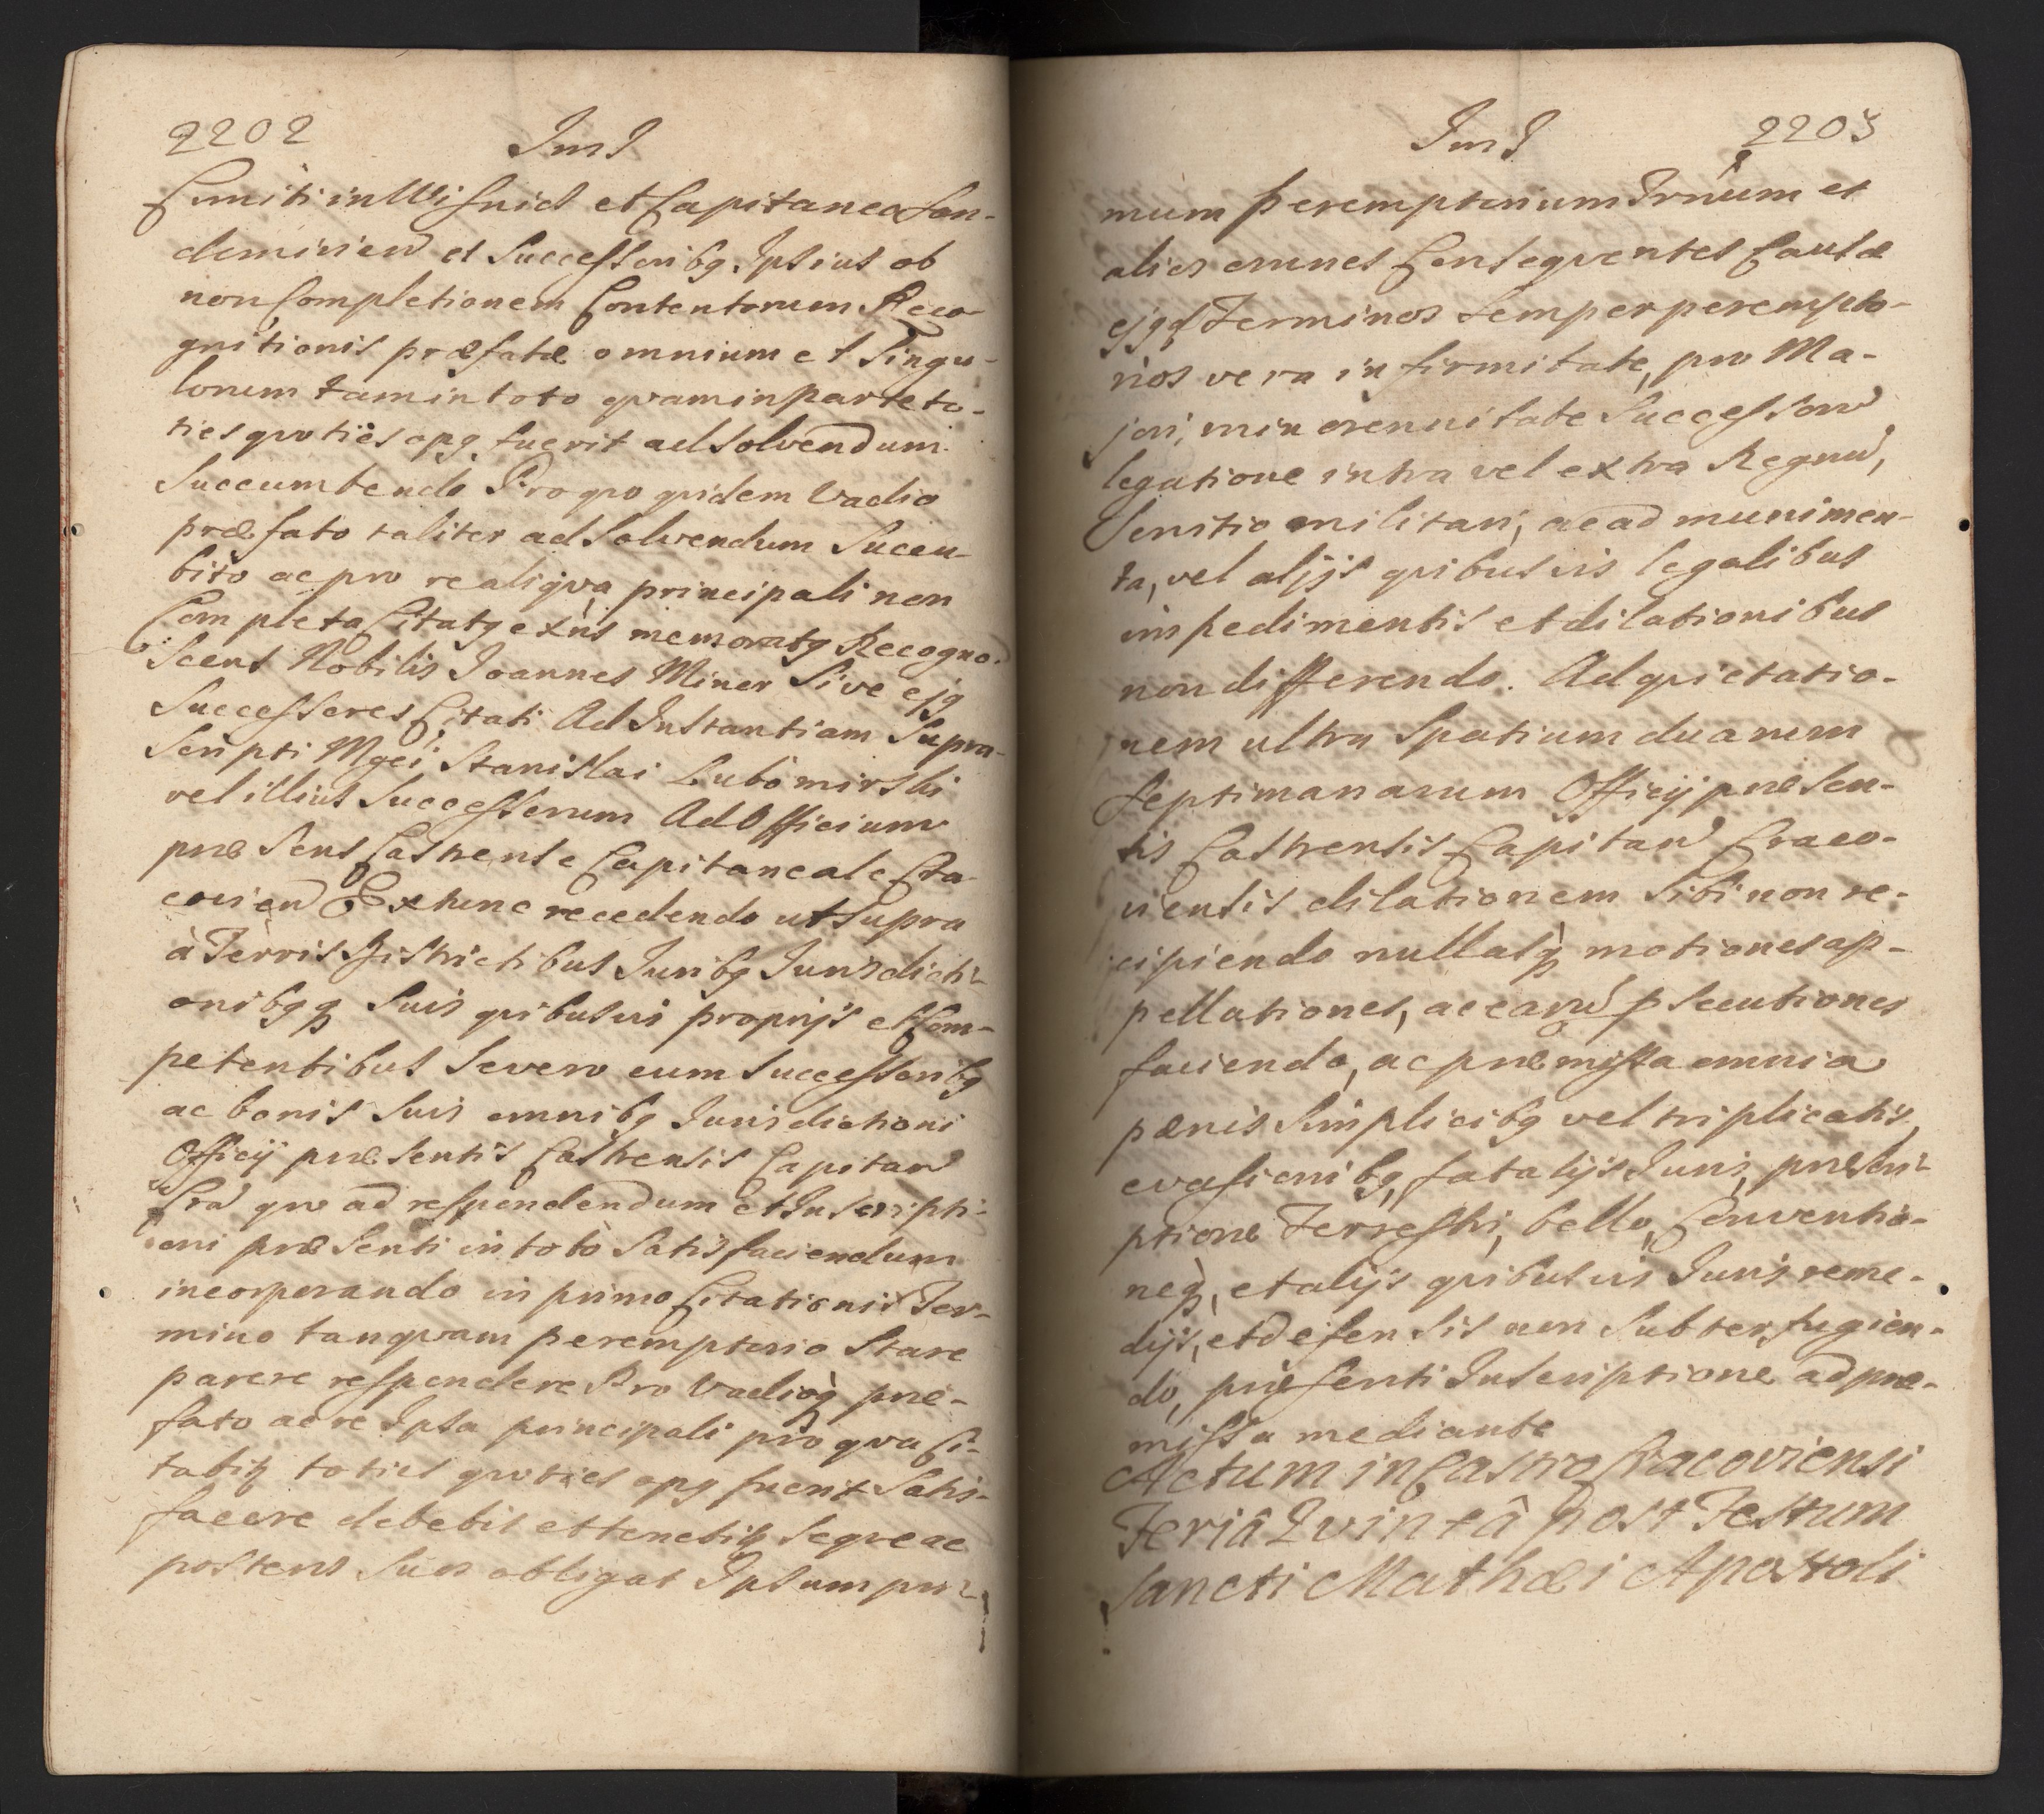 2202
Ims
Comiti in Wisnicz et Capitaneo San-
domirien et Successoribq Ipsius ob
non Completionem Contentorum Reco-
gnitionis præfatæ omnium et Singu-
lorum tam in toto qvam in parte to-
ties qvoties opq fuerit ad solvendum
Succumbendo Pro qvo qvidem Vadio
præfato taliter ad Solvendum Succu-
bito ac pro re aliqva principali non
Completa Citatq exñs memoratq Recogno-
Scens Nobilis Joannes Miner Sive ejq
Successores Citati Ad Instantiam Supra-
Scripti Mgci Stanislai Lubomirski
vel illius Successorum Ad Officium
præsens Castrense Capitaneale Cra-
covien Ex hunc recedendo ut Supra
à Terris Districtibus Juribq Jurisdicti-
onibqq Suis qvibusvis proprijs et Com-
petentibus Severo cum Successoribq
ac bonis Suis omnibq Jurisdictioni
Officij præsentis Castrensis Capitan
Cra qvo ad respondendum et Inscripti-
oni præsenti in toto Satisfaciendum
incorporando in primo Citationis Ter-
mino tanqvam peremptorio Stare
parere respondere Pro Vadioq præ-
fato ac re Ipsa principali pro qva Ci-
tabitq toties qvoties opq fuerit Satis-
facere debebit et tenebitq Seqve ac
posteros Suos obligat Ipsum pri-
Ims
2203
mum peremptorium Trnum et
alios omnes Conseqventes Causæ
ejqd Terminos Semper perempto-
rios vera infirmitate, pro Ma-
jori, minorennitate Successorum
legatione intra vel extra Regnum,
Servitio militari, ac ad munimen-
ta, vel alijs qvibusvis legalibus
impedimentis et dilationibus
non differendo. Ad qvietatio-
nem ultra Spatium duarum
Septimanarum Officij præsen-
tis Castrensis Capitan Craco-
viensis dilationem Sibi non re-
cipiendo nullasq motiones ap-
pellationes, ac earum pSecutiones
faciendo, ac præmissa omnia
pænis Simplicibq vel triplicatis,
evasionibq, fatalijs Juris, præscri-
ptione Terrestri, bello, Conventio-
neq, et alijs qvibusvis Juris reme-
dijs, et defensis non Subterfugien-
do, præsenti Inscriptione ad præ-
missa mediante
Actum in Castro Cracoviensi
Feriâ Qvintâ post Festum
Sancti Mathæi Apostoli